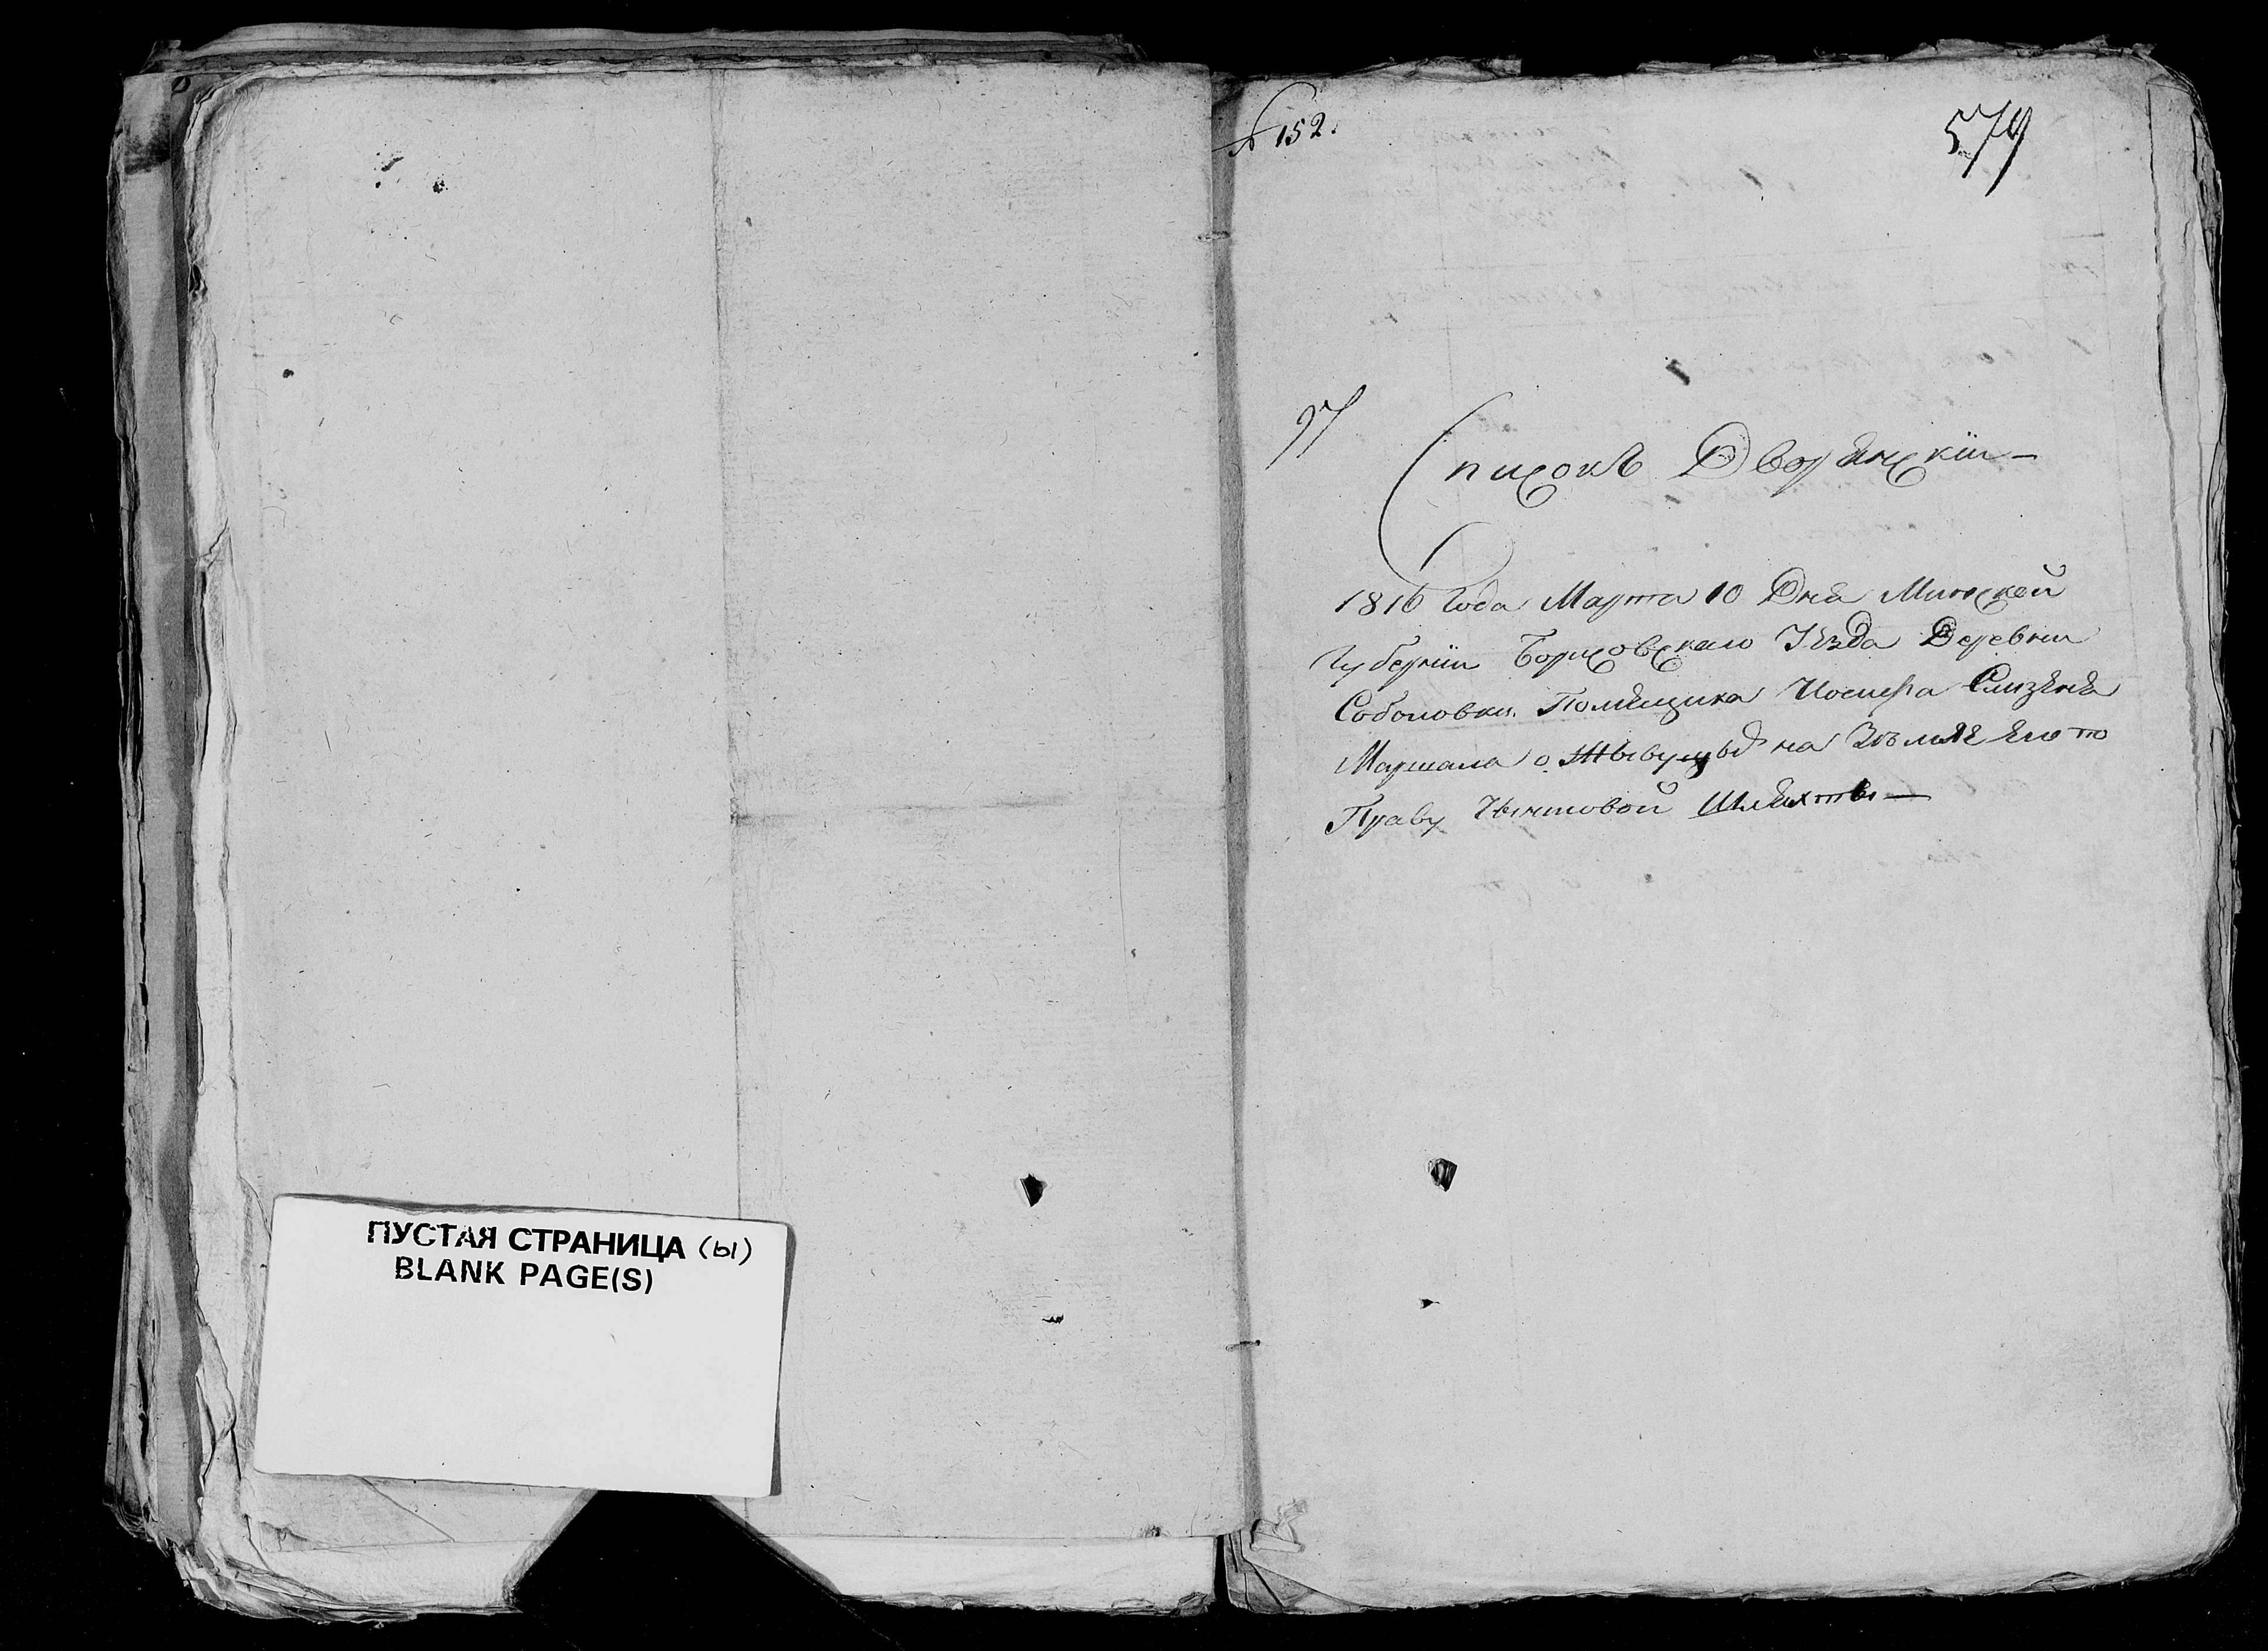 ПУСТАЯ СТРАНИЦА (ы)
BLANK PAGE(S)
№ 152.
579
97
Списокъ Дворянскiи —
1816 Года Марта 10 Дня Минскей
Губернiи Борисовскаго Уѣзда Деревни
Соболовки Помѣщика Иосифа Слизѣня
Маршала о Жывущый на Зѣмле Его по
Праву Чыншовой Шляхты —